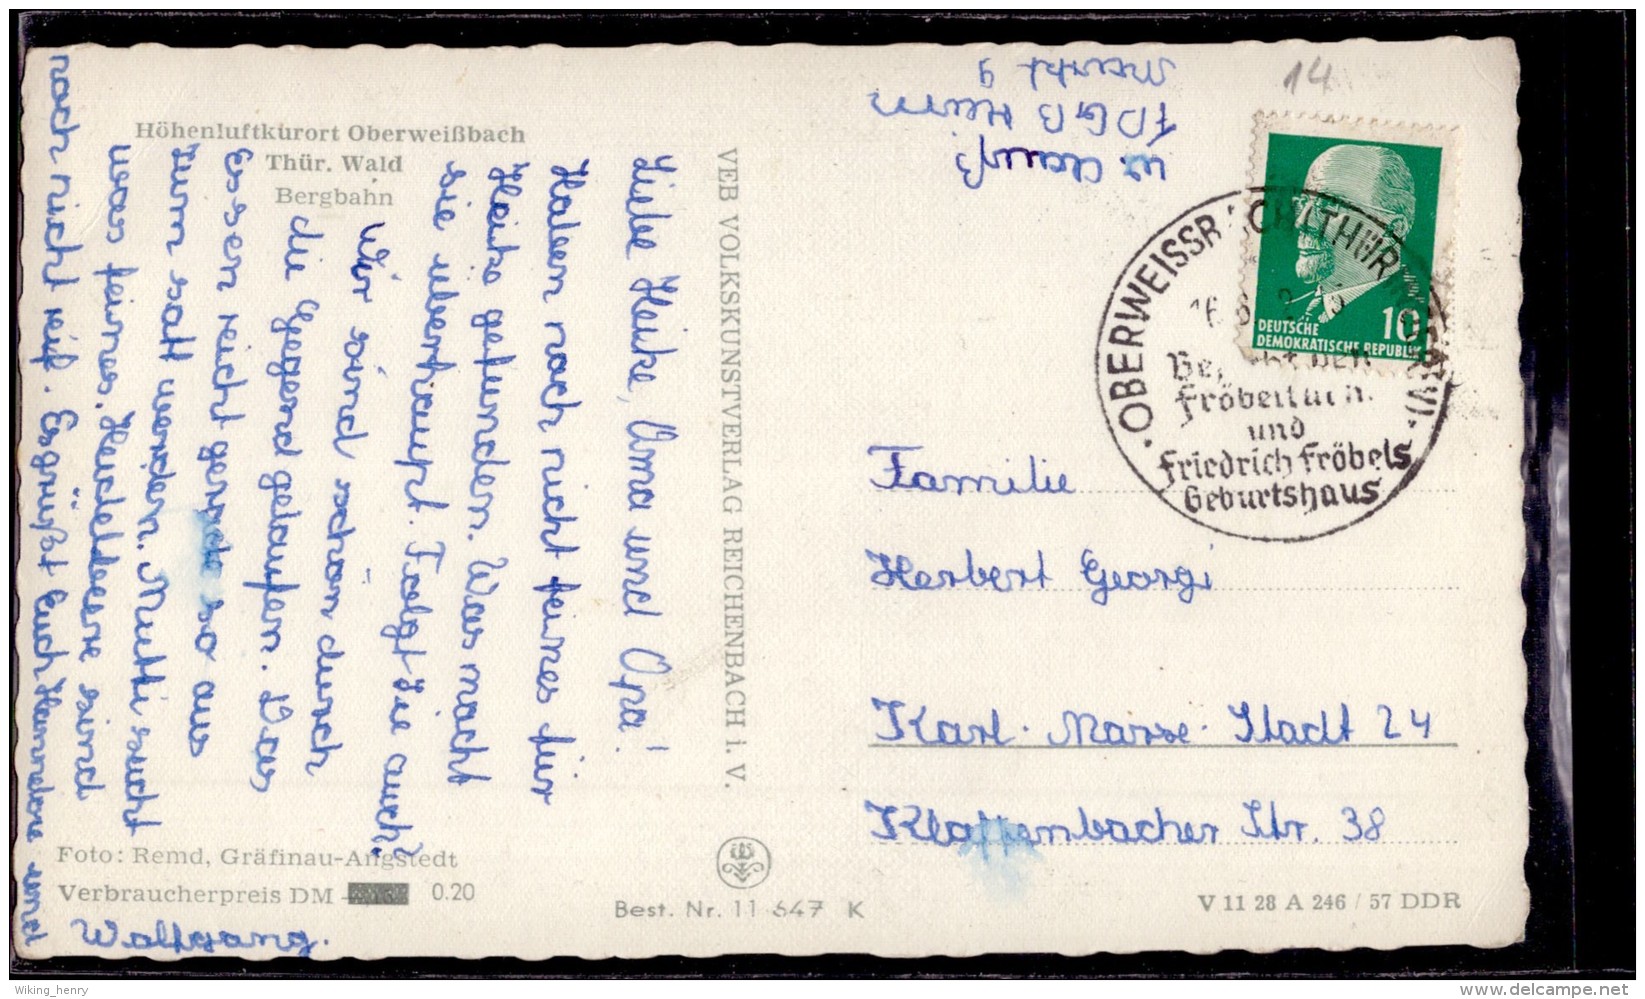 Höhenluftkurort Oberweißbach
Thür. Wald
Bergbahn
Liebe Heike, Oma und Opa!
Haben noch nicht feines für
Heike gefunden. Was macht
sie überhaupt. Folgt sie auch?
Wir sind schön durch
die Gegend gelaufen. Das
Essen reicht gerade so aus
zum satt werden. Mutti sucht
was feines. Heidelbeere sind
noch nicht reif. Es grüßt Euch Hannelore und
Wolfgang.
Foto: Remd, Gräfinau-Angstedt
Verbraucherpreis DM 0.20
VEB VOLKSKUNSTVERLAG REICHENBACH i. V.
Best. Nr. 11 647 K
FDGB Heim
Markt 9
14
DEUTSCHE
DEMOKRATISCHE REPUBLIK
10
und
Friedrich Fröbels
Geburtshaus
Familie
Herbert Georgi
Karl-Marx-Stadt 24
Klaffenbacher Str. 38
V 11 28 A 246 / 57 DDR
Wiking_henry
www.delcampe.net